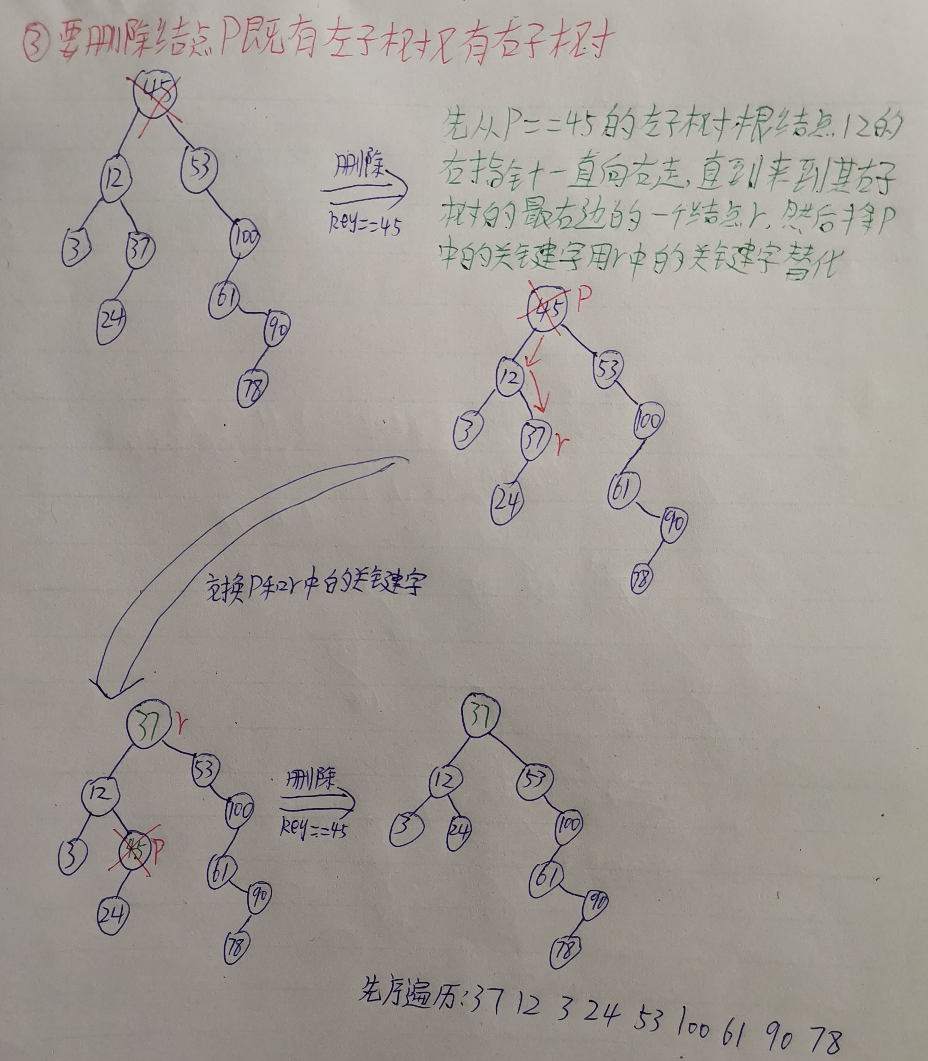 ③要删除结点P既有左子树又有右子树
45
12
53
3
37
100
24
61
90
78
删除
key==45
先从P==45的左子树根结点12的
右指针一直向右走,直到来到其右子
树的最右边的一个结点r,然后将P
中的关键字用r中的关键字替代
45 P
12
53
3
37 r
100
24
61
90
78
交换P和r中的关键字
37 r
12
53
3
45 P
100
24
61
90
78
删除
key==45
37
12
53
3
24
100
61
90
78
先序遍历:37 12 3 24 53 100 61 90 78